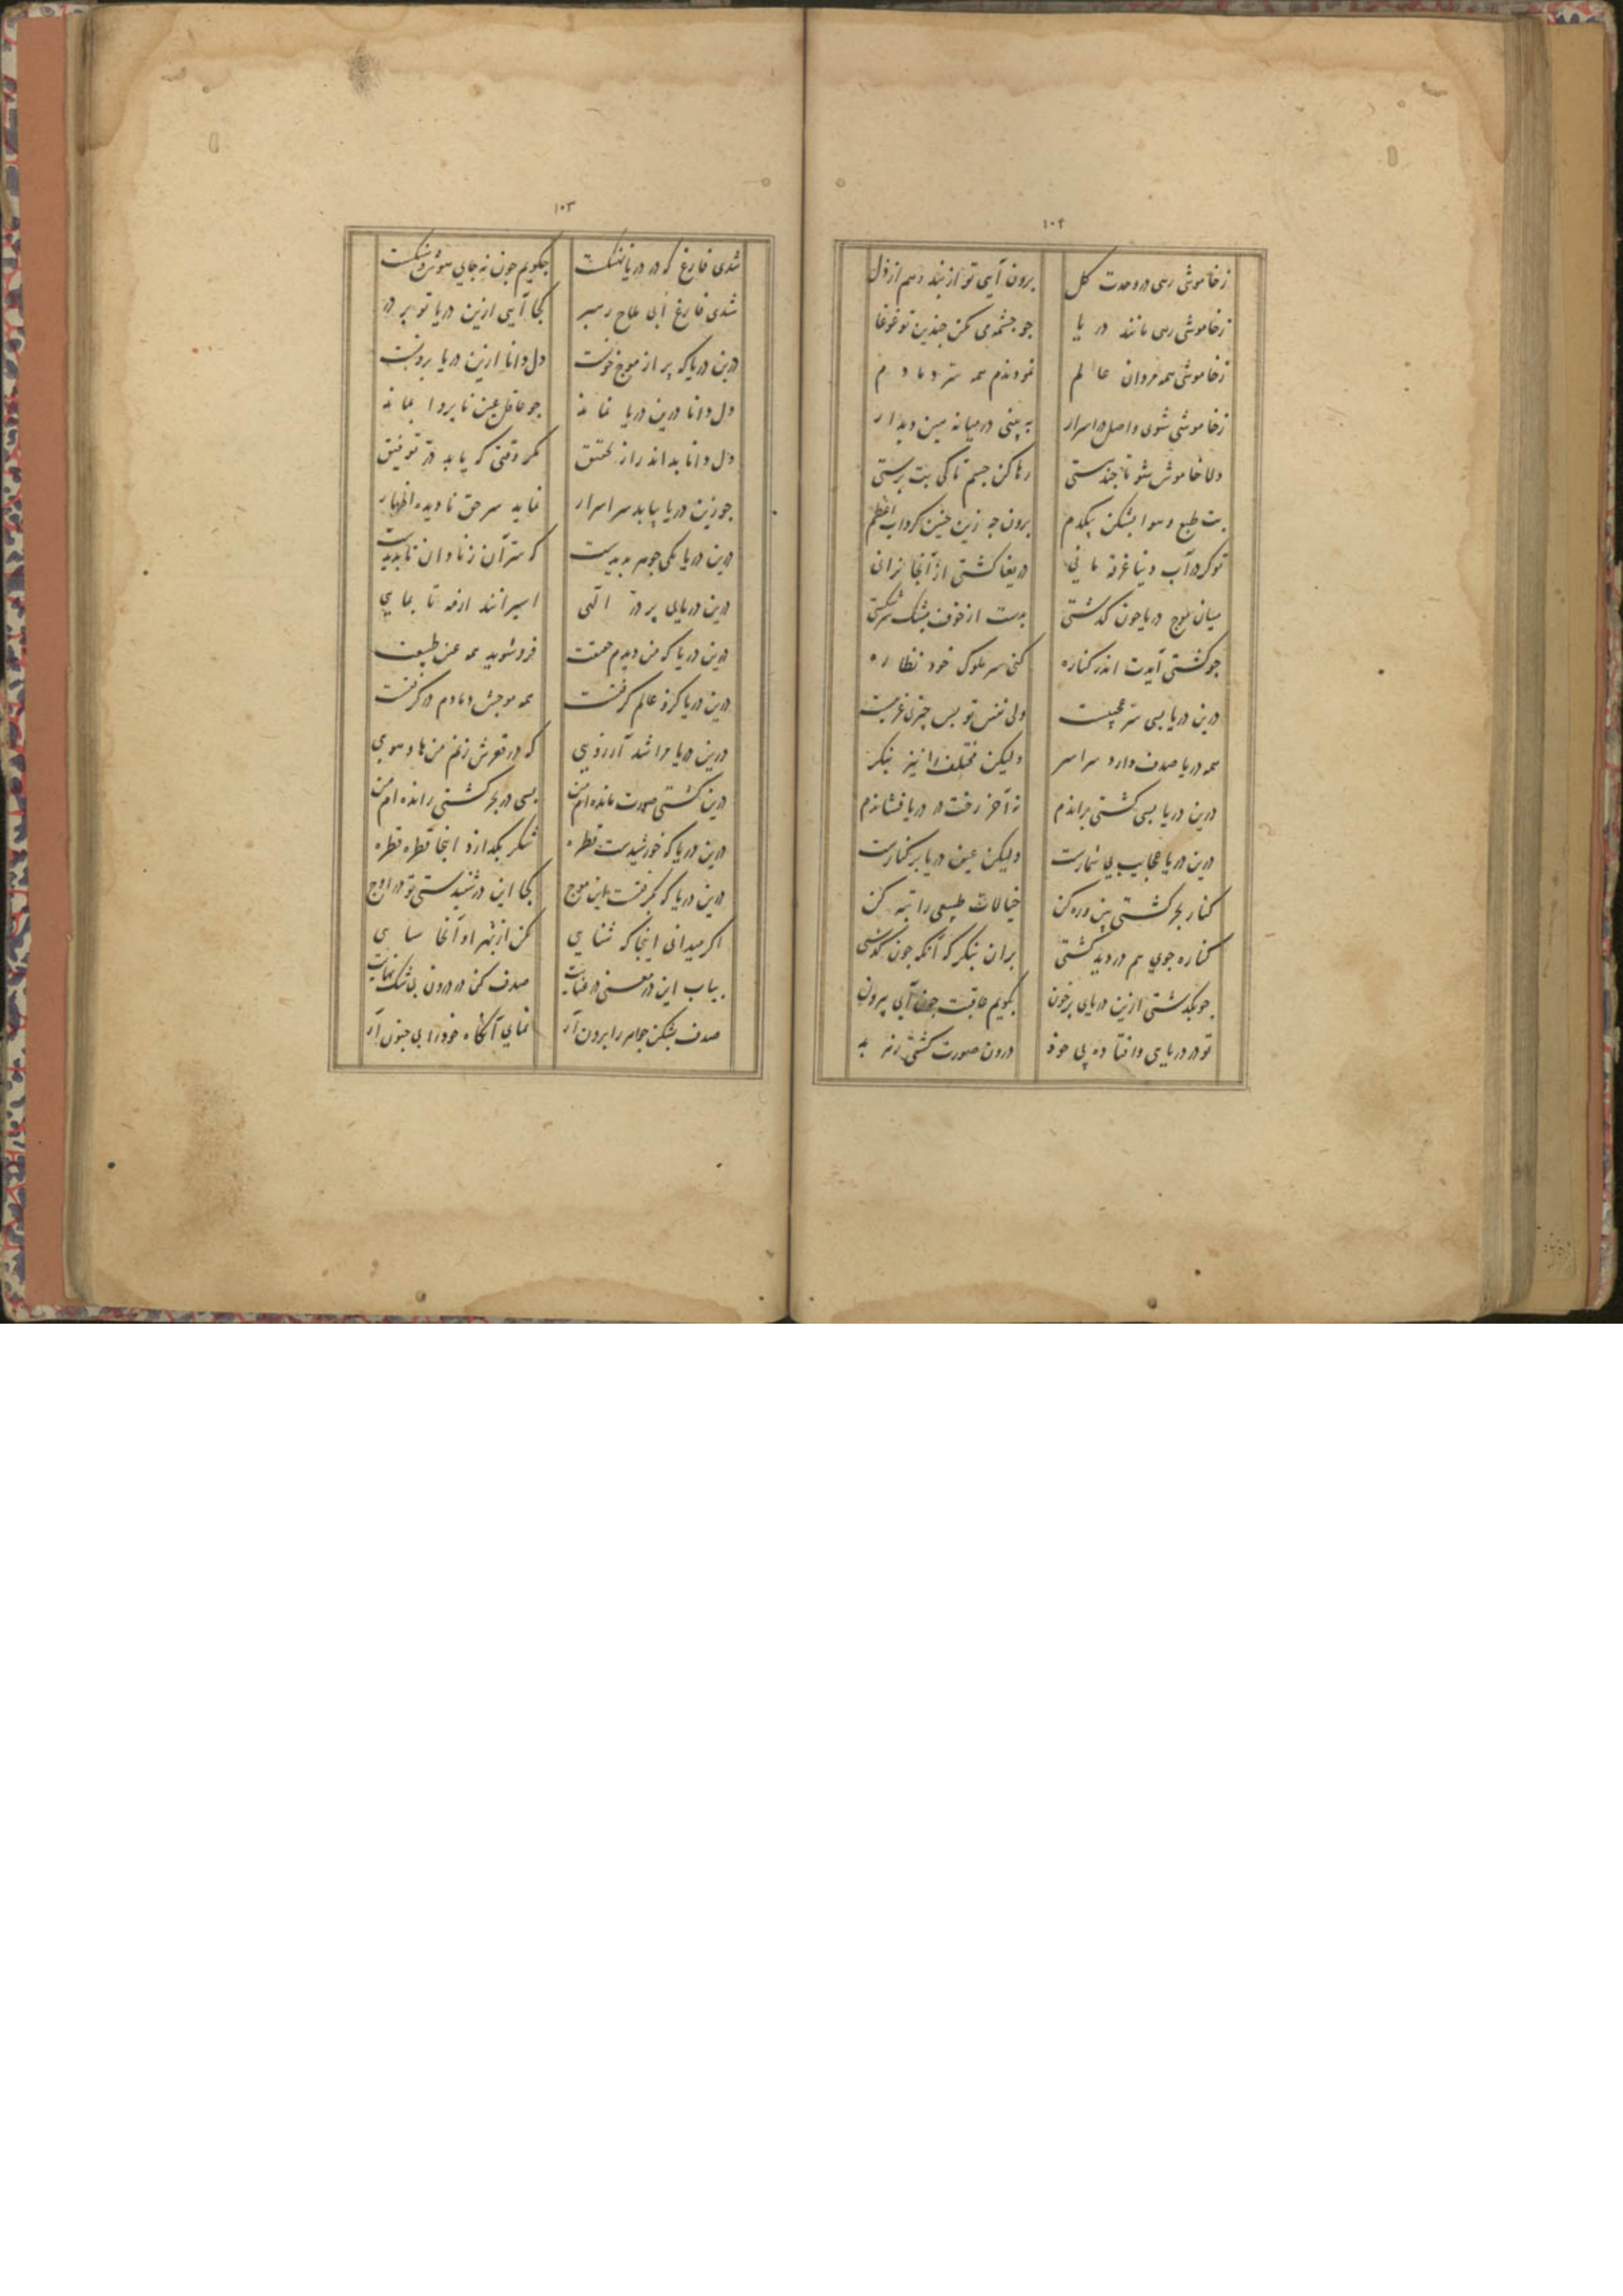 ۱۰۲
زخاموشی رسی در وحدت کل برون آیی تو از بند وهم از ذل
زخاموشی رسی مانند در یا جو جشمه می مکن جندین تو غوغا
زخاموشی همه مردان عالم نمودندم همه سر دمادم
زخاموشی شوی واصل در اسرار به بینی در میانه عین دیدار
دلا خاموش شو تا جند مستی رها کن جسم تا کی بت برستی
بت طبع وهوا بشکن بیکدم برون جه زین جنین کرداب اعظم
تو کر در آب دنیا غرقه مانی دریغا کشتی از آنجا نرانی
میان موج دریا جون کذشتی
جو کشتی آیدت اندر کناره کنی سر ملوک خود نظاره
درین دریا بسی سر عجیبست ولی نفس تو بس جیزی غریبست
همه دریا صدف دارد سراسر ولیکن مختلف را نیز بنکر
درین دریا بسی کشتی براندم نه آخر رخت در دریا فشاندم
درین دریا عجایب بی شمارست ولیکن عین دریا بر کنارست
کنار بحر کشتی بین و ره کن خیالات طبیعی را تبه کن
کناره جوی هم در دید کشتی بران بنکر که آنکه جون کذشتی
جو بکذشتی ازین دریای برخون بکویم عاقبت جون آیی بیرون
تو در دریایی وافتاده بی خود درون صورت کشتی
۱۰۳
شدی فارغ که در دریا نهنکست جکویم جون نه جای هوش وسنکست
شدی فارغ ابی ملاح رهبر کجا آیی ازین دریا تو بر در
درین دریا که بر از موج خونست دل دانا ازین دریا برونست
دل دانا درین دریا نماند جو عاقل عین نابروا بماند
دل دانا بداند راز تحقیق مکر وقتی که یابد در توفیق
جو زین دریا بیابد سر اسرار نماید سر حق نادیده اظهار
درین دریا یکی جوهر بدیدست که سر آن ز نادان نابدیدست
درین دریای بر در الهی اسیرانند ازمه تا بماهی
درین دریا که من دیدم حقیقت فرو شوید همه عین طبیعت
درین دریا کزو عالم کرفتست همه موجش دمادم در کرفتست
درین دریا مرا شد آرزویی که در قعرش زنم من های وهویی
درین کشتی صورت مانده ام من بسی در بحر کشتی رانده ام من
درین دریا که خورشیدست قطره شکر بکدازد اینجا قطره قطره
درین دریا که بکرفتست این موج کجا این در شنیدستی تو در اوج
اکر میدانی اینجا که شنایی مکن از بهر او آنجا
بیاب این در معنی در عنایت صدف کن در درون بی شک نهایت
صدف بشکن جواهر را برون آر نمای آنکاه خود را بی جنون آر